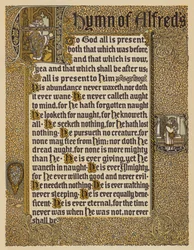 Hymn of Alfred's
To God all is present,
both that which was before,
and that which is now,
yea and that which shall be after us;
all is present to him;
His abundance never waxeth, nor doth
it ever wane. He never calleth aught
to mind, for he hath forgotten naught
He looketh for naught, for he knoweth
all. He seeketh nothing, for he hath lost
nothing. He pursueth no creature, for
none may flee from him; nor doth he
dread aught, for none is more mighty
than He. He is ever giving, yet He
waneth in naught. He is ever Almighty,
for He ever willeth good and never evil.
He needeth nothing. He is ever watching
never sleeping. He is ever equally bene-
ficent. He is ever eternal, for the time
never was when He was not, nor ever
shall be